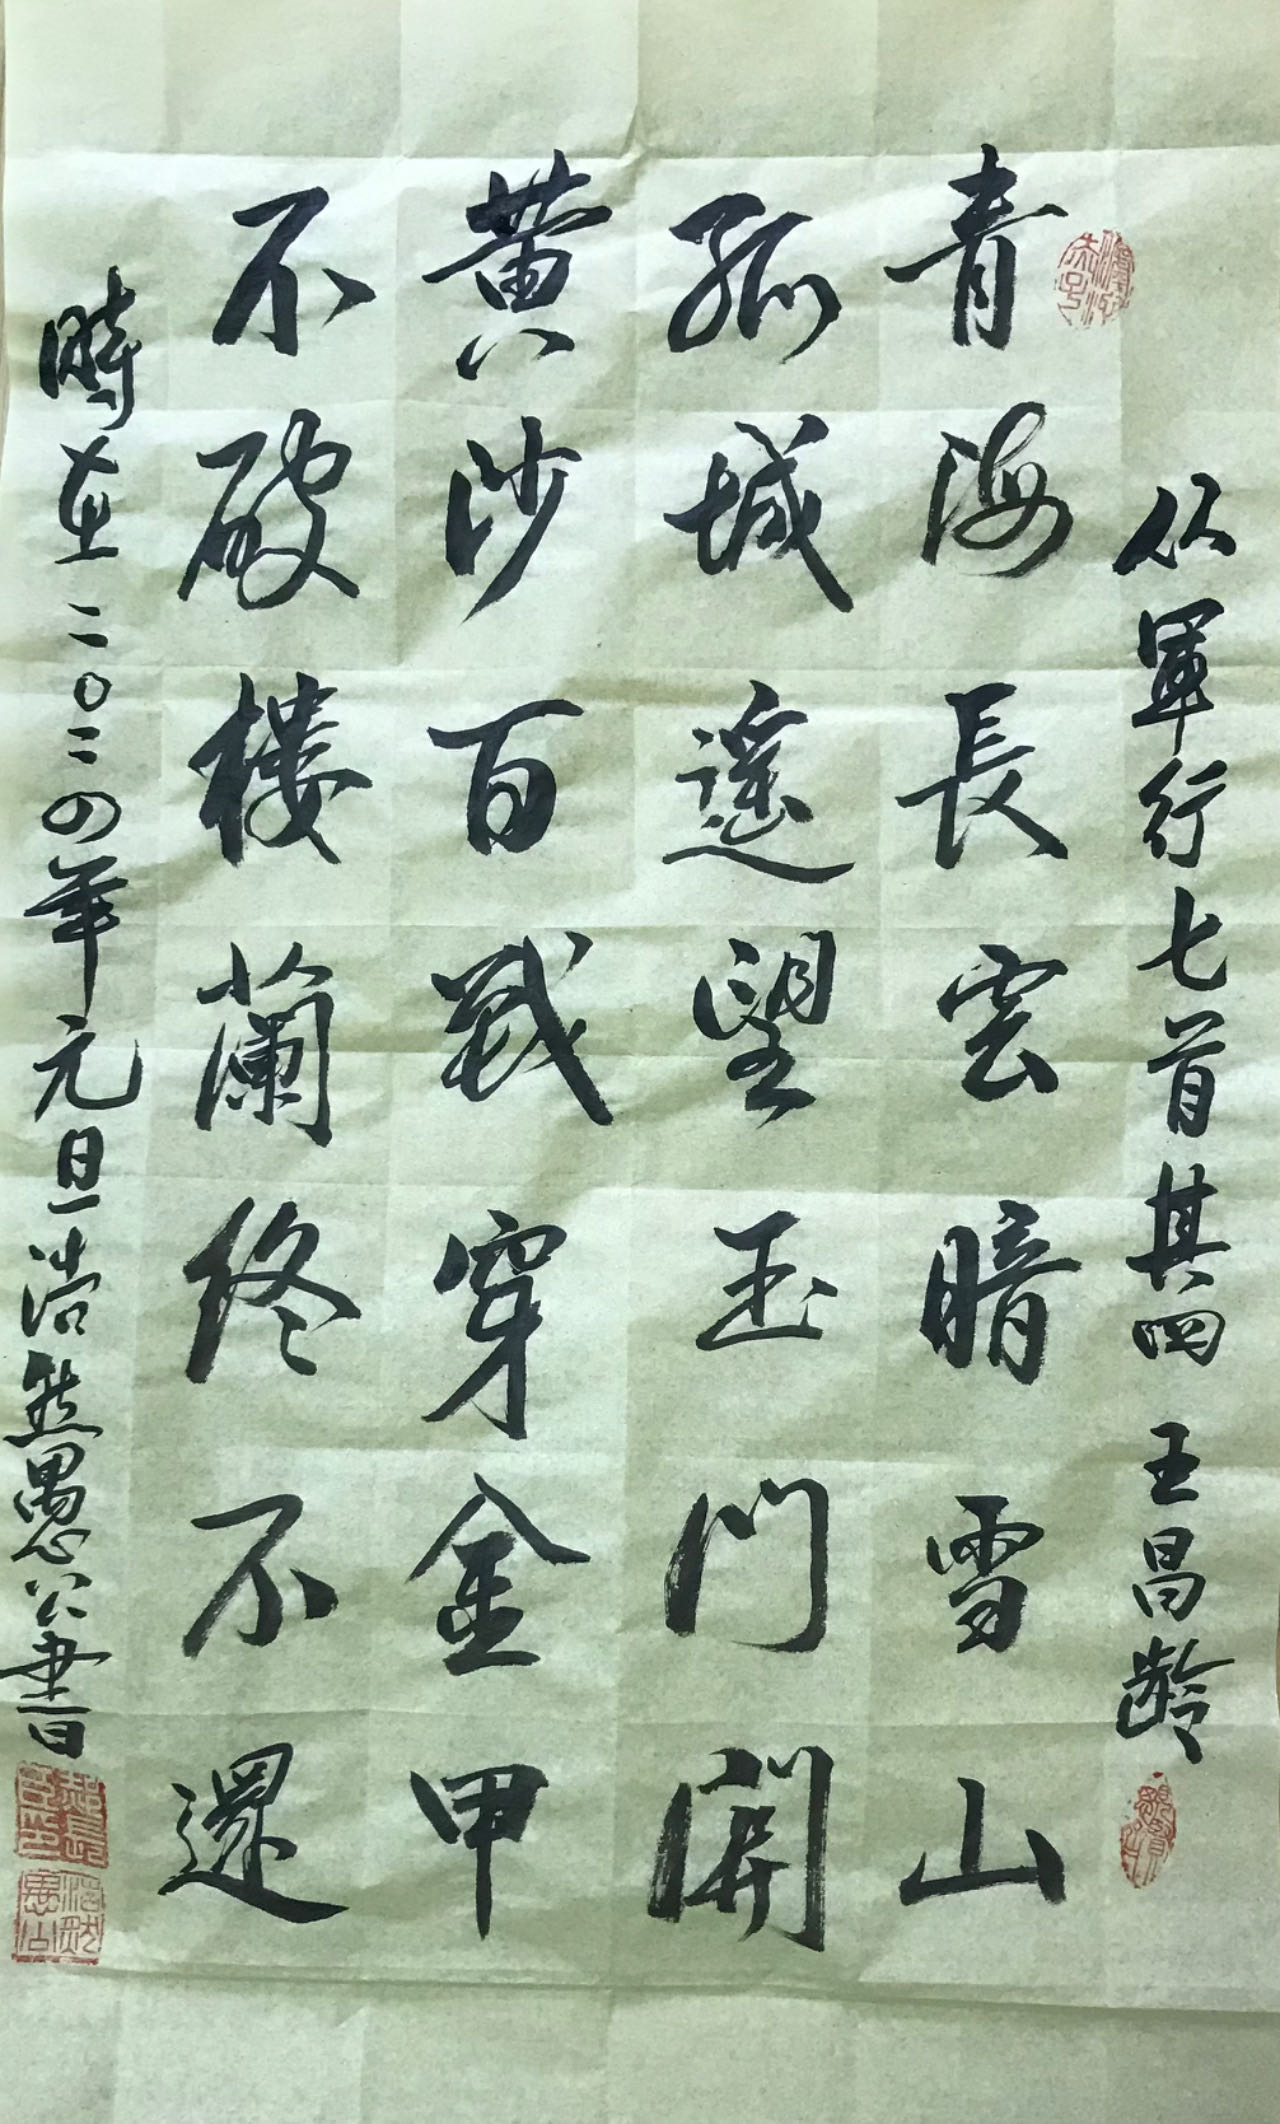 从軍行七首其四 王昌龄
青海長雲暗雪山
孤城遥望玉門開
黄沙百戰穿金甲
不破樓蘭终不還
時在二〇二四年元旦浩然愚公書
浩然愚公